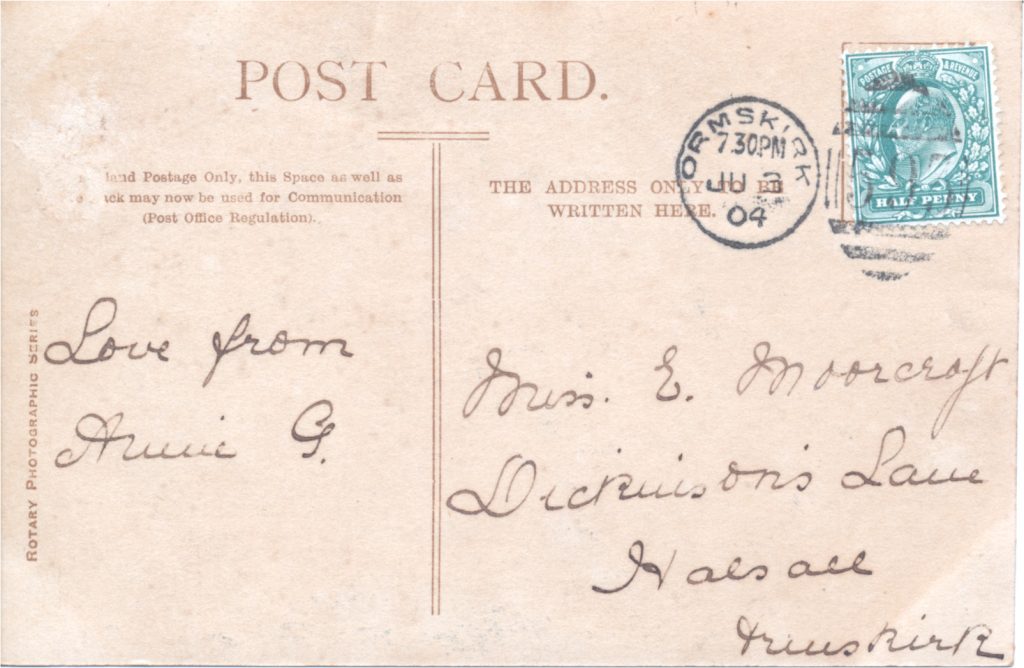 POST CARD.
land Postage Only, this Space as well as
ck may now be used for Communication
(Post Office Regulation).
THE ADDRESS ONLY TO BE
WRITTEN HERE.
ORMSKIRK
7.30PM
JU
04
POSTAGE & REVENUE
HALF PENNY
ROTARY PHOTOGRAPHIC SERIES
Love from
Annie G.
Miss. E. Moorcroft
Dickinson's Lane
Halsall
Ormskirk